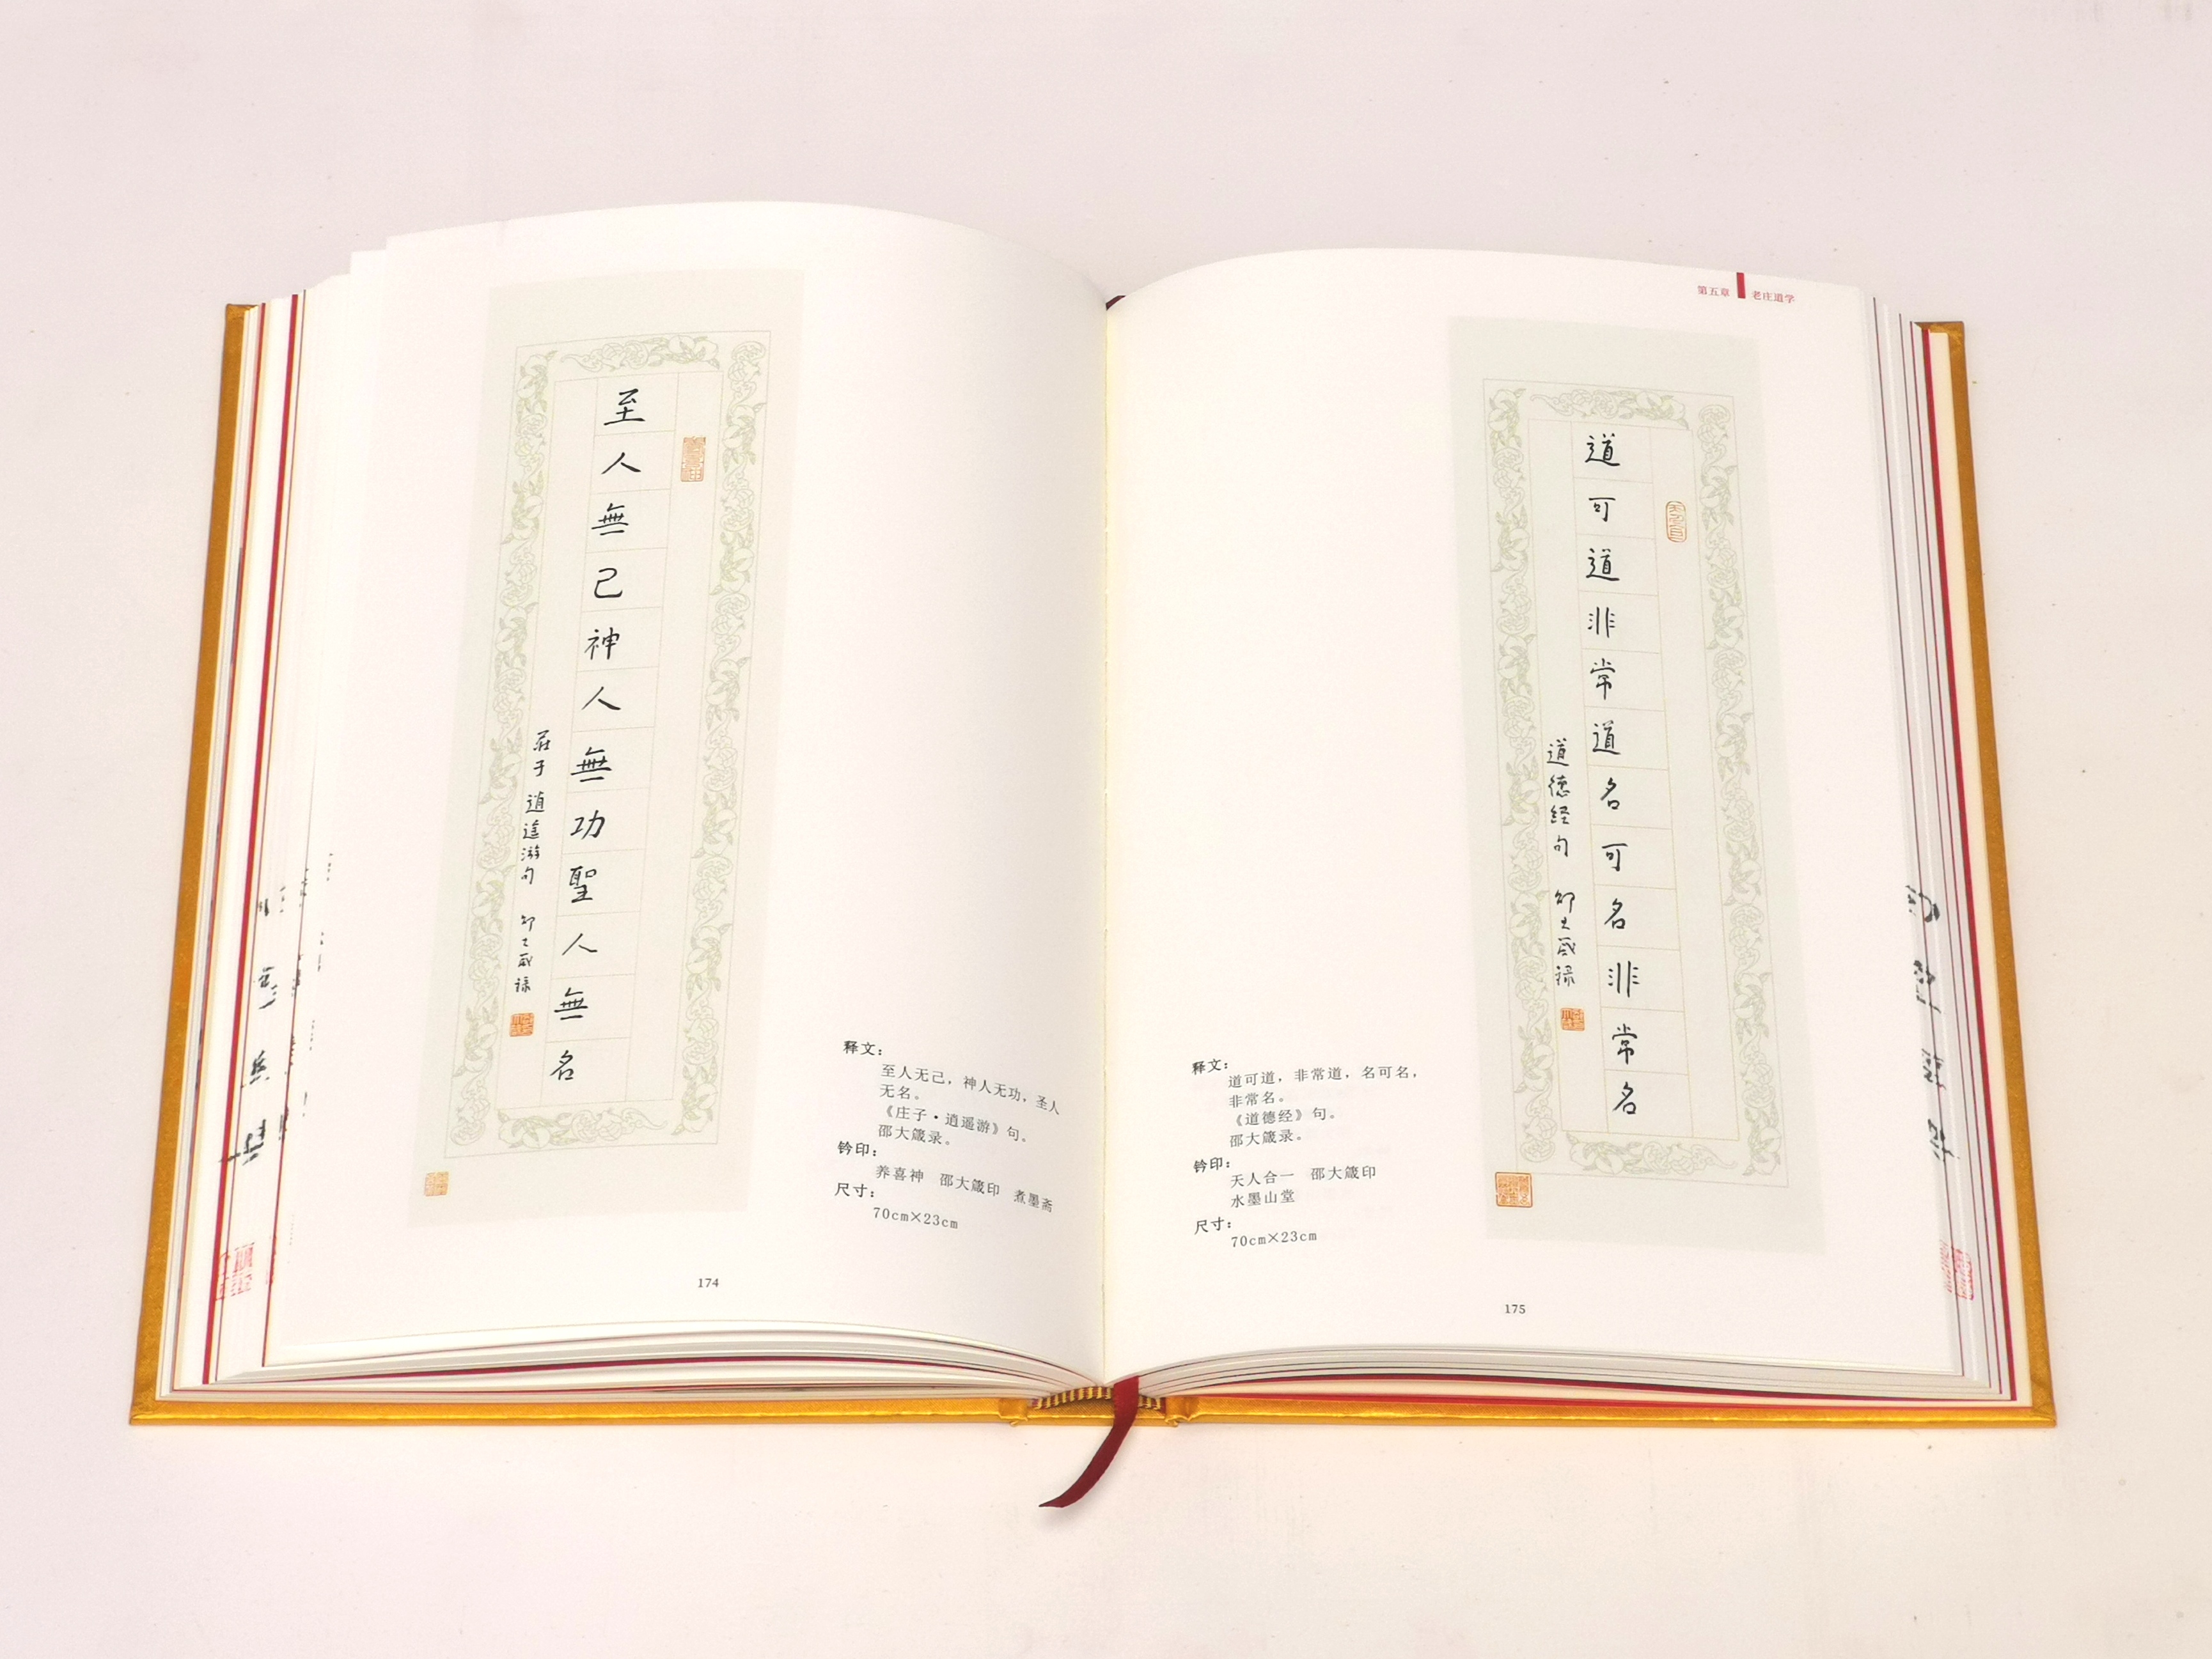 至人無己神人無功聖人無名
莊子 逍遙游句 邵大箴録
释文：
至人无己，神人无功，圣人
无名。
《庄子·逍遥游》句。
邵大箴录。
钤印：
养喜神 邵大箴印 煮墨斋
尺寸：
70cm×23cm
174
第五章 老庄道学
道可道非常道名可名非常名
道德经句 邵大箴録
释文：
道可道，非常道，名可名，
非常名。
《道德经》句。
邵大箴录。
钤印：
天人合一 邵大箴印
水墨山堂
尺寸：
70cm×23cm
175